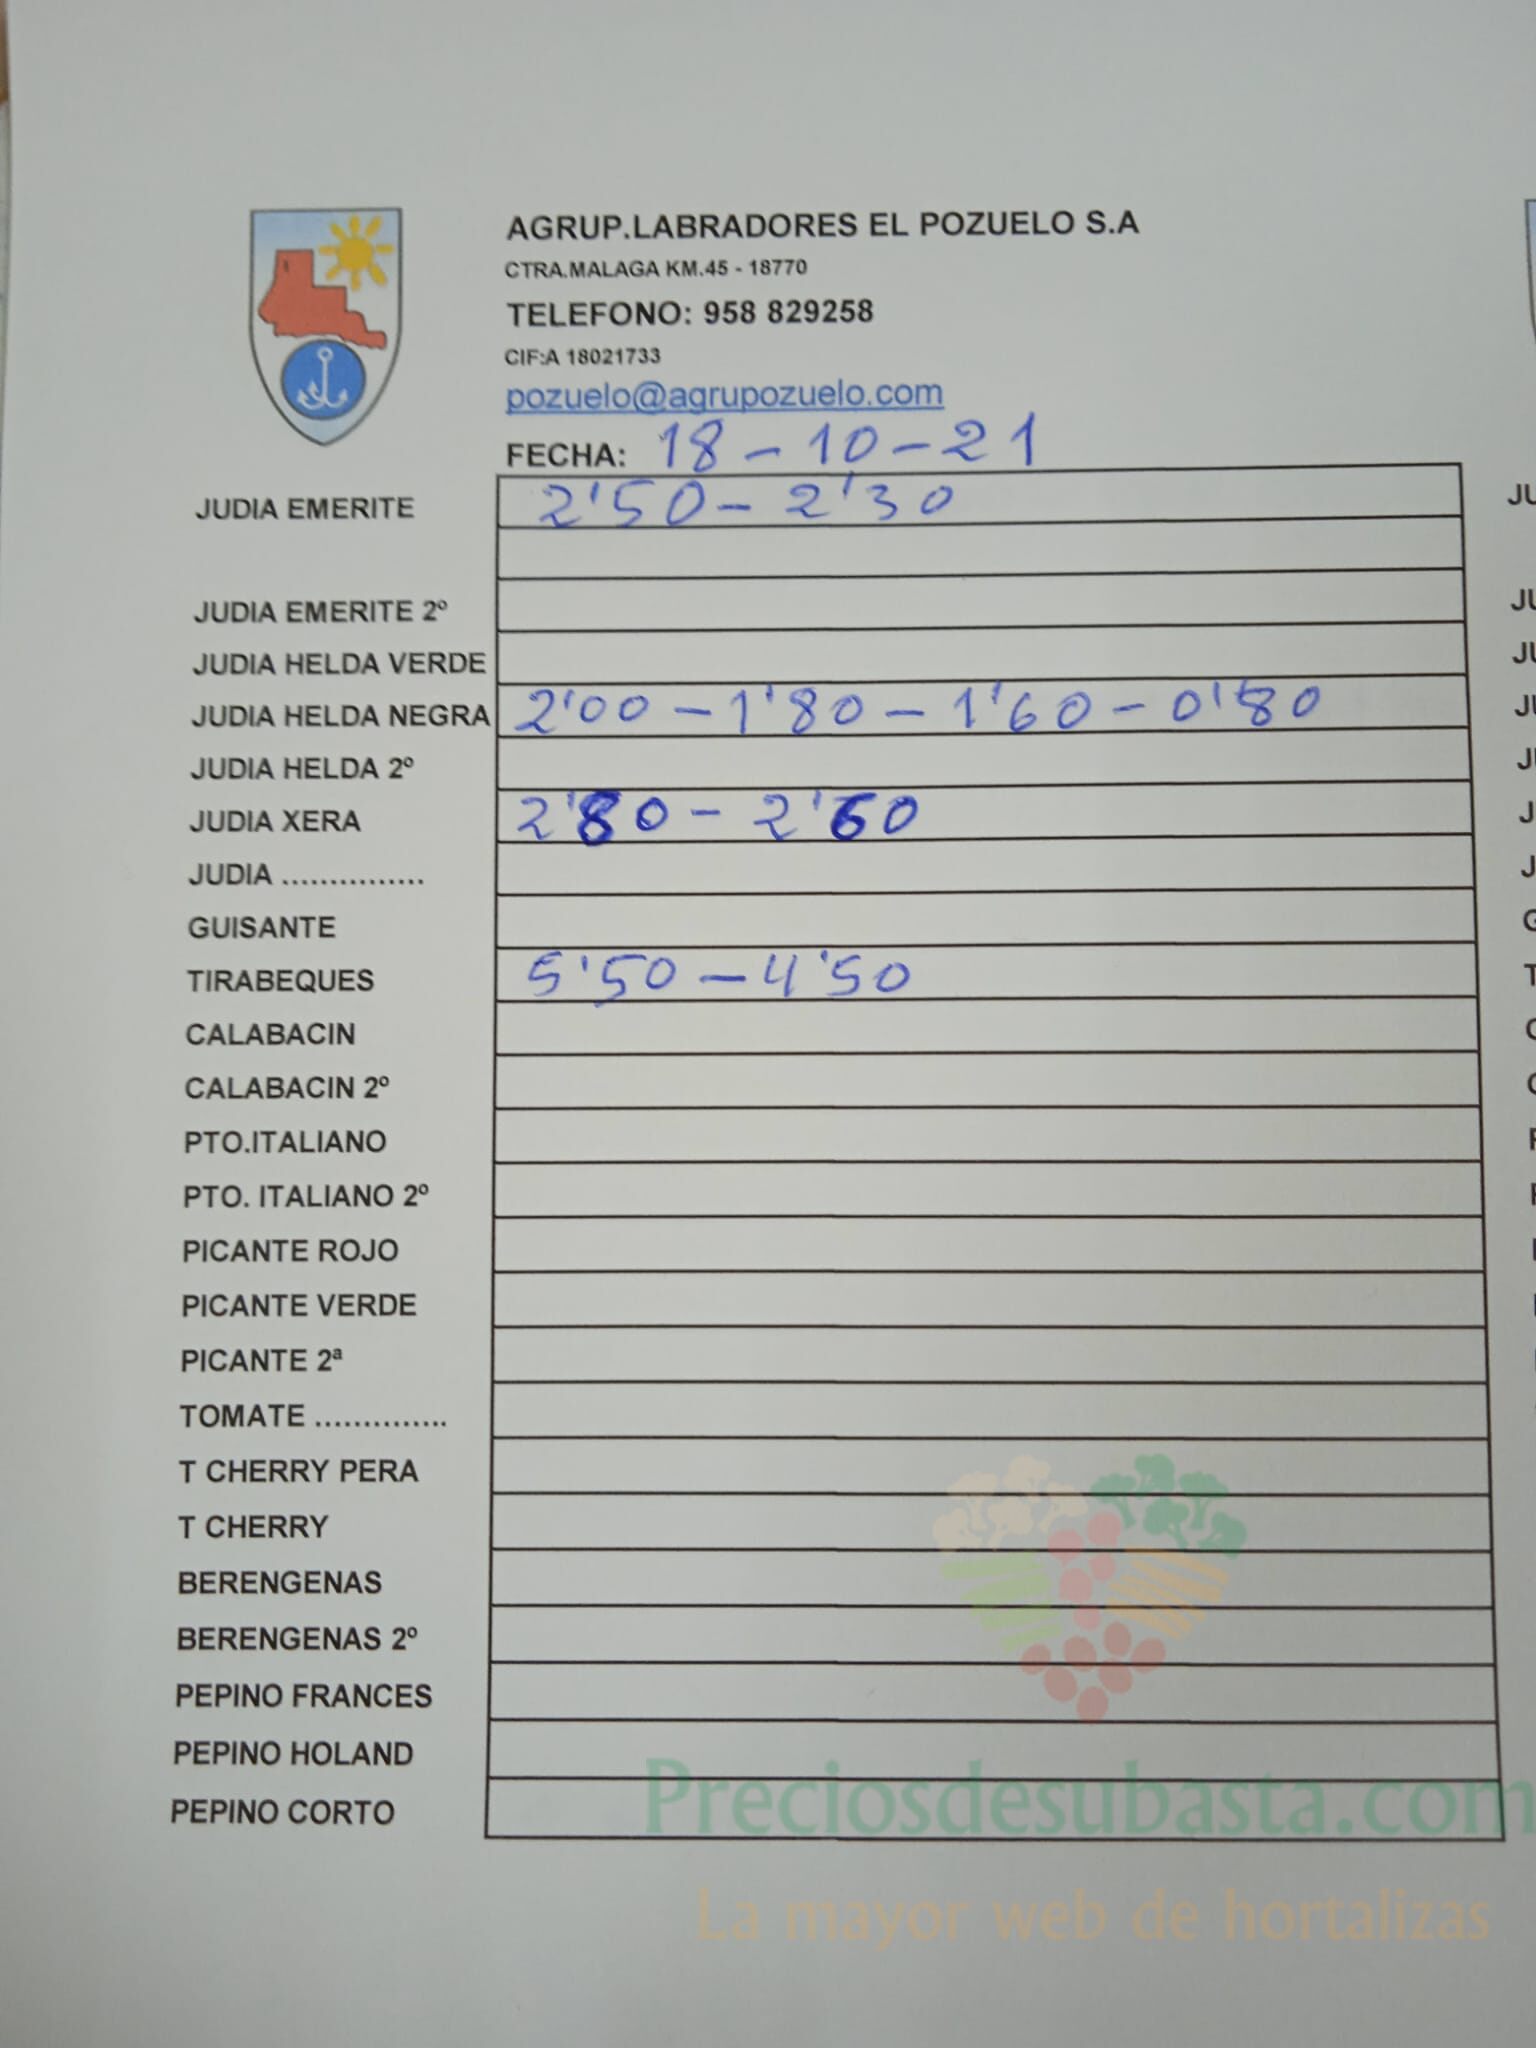 AGRUP.LABRADORES EL POZUELO S.A
CTRA.MALAGA KM.45 - 18770
TELEFONO: 958 829258
CIF:A 18021733
pozuelo@agrupozuelo.com
FECHA: 18-10-21
JUDIA EMERITE 2'50 - 2'30
JUDIA EMERITE 2º
JUDIA HELDA VERDE
JUDIA HELDA NEGRA 2'00 - 1'80 - 1'60 - 0'80
JUDIA HELDA 2º
JUDIA XERA 2'80 - 2'60
JUDIA ...............
GUISANTE
TIRABEQUES 5'50 - 4'50
CALABACIN
CALABACIN 2º
PTO.ITALIANO
PTO. ITALIANO 2º
PICANTE ROJO
PICANTE VERDE
PICANTE 2ª
TOMATE ..............
T CHERRY PERA
T CHERRY
BERENGENAS
BERENGENAS 2º
PEPINO FRANCES
PEPINO HOLAND
PEPINO CORTO
Preciosdesubasta.com
La mayor web de hortalizas